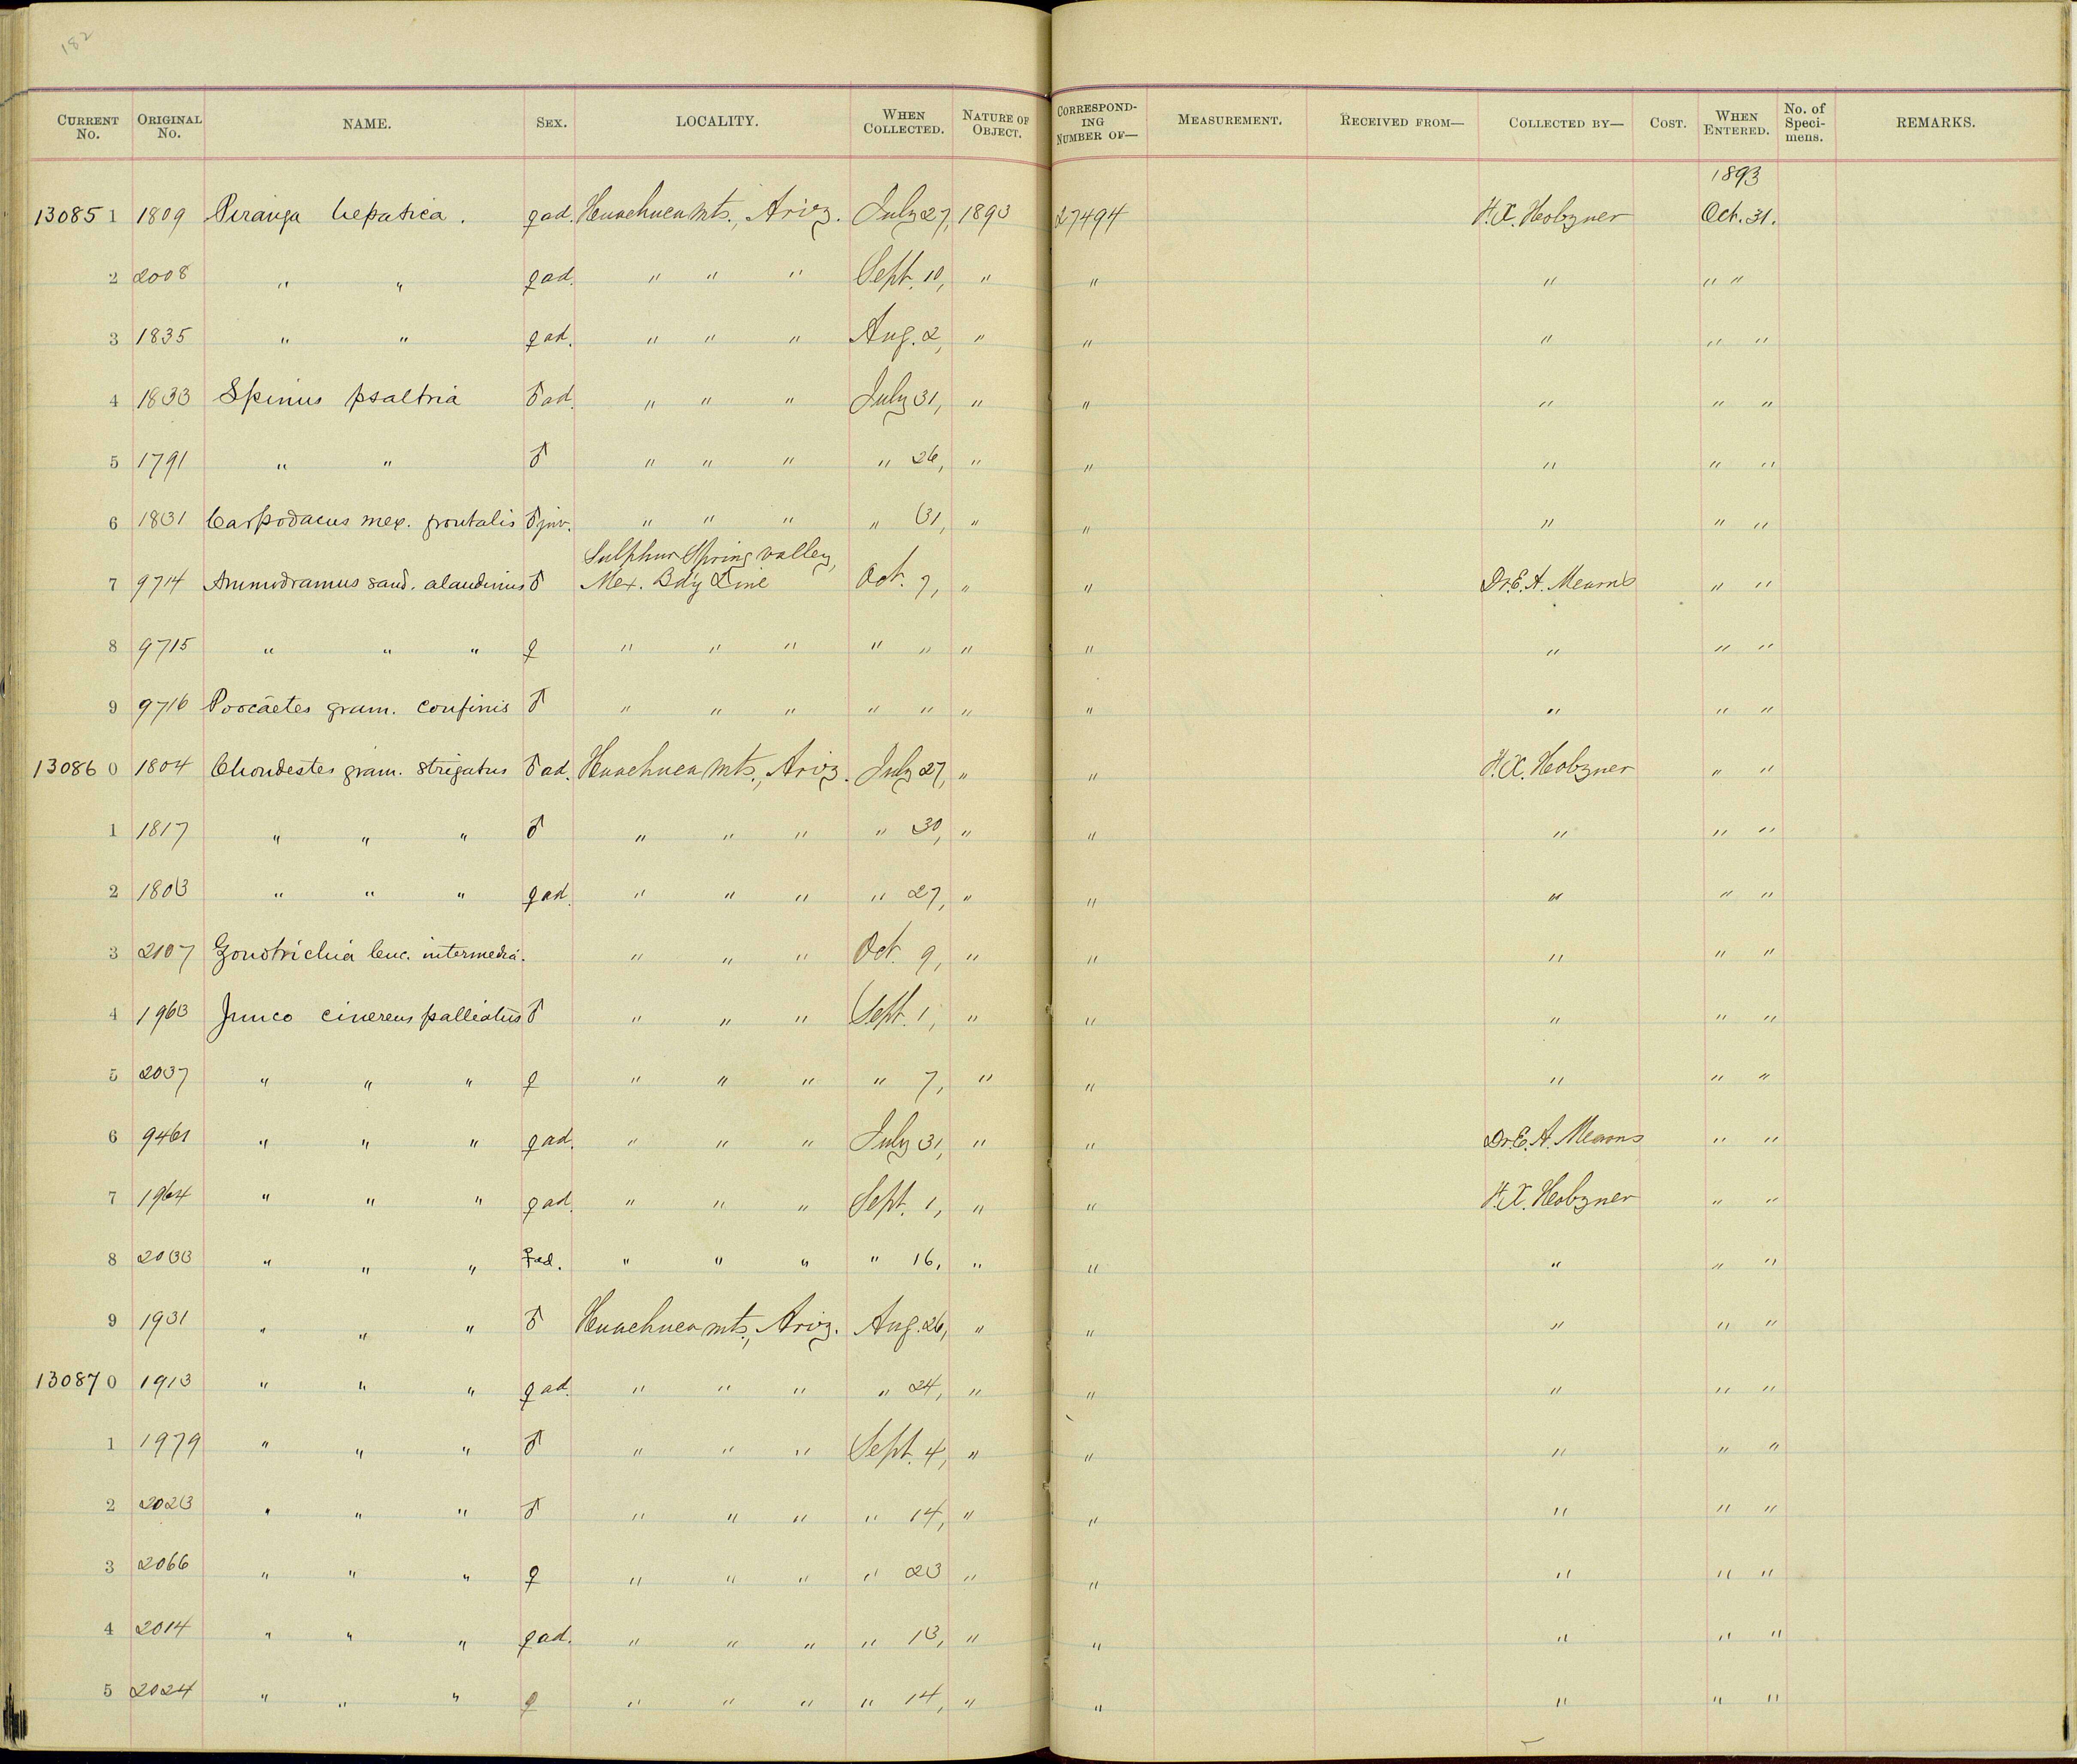 182
CURRENT No. ORIGINAL No. NAME. SEX. LOCALITY. WHEN COLLECTED. NATURE OF OBJECT. CORRESPONDING NUMBER OF— MEASUREMENT. RECEIVED FROM— COLLECTED BY— COST. WHEN ENTERED. No. of Specimens. REMARKS.
1893
130851 1809 Piranga hepatica. ♀ad. Huachuca Mts., Ariz. July 27, 1893 27494 H.X. Holzner Oct. 31.
2 2008 " " ♀ad. " " " Sept. 10, " " " " "
3 1835 " " ♀ad. " " " Aug. 2, " " " " "
4 1833 Spinus psaltria ♂ad. " " " July 31, " " " " "
5 1791 " " ♂ " " " " 26, " " " " "
6 1831 Carpodacus mex. frontalis ♂juv. " " " " 31, " " " " "
Sulphur Spring valley,
7 9714 Ammodramus sand. alaudinus ♂ Mex. Bd'y Line Oct. 7, " " Dr. E. A. Mearns " "
8 9715 " " " ♀ " " " " " " " " " "
9 9716 Poocaetes gram. confinis ♂ " " " " " " " " " "
130860 1804 Chondestes gram. strigatus ♂ad. Huachuca Mts., Ariz. July 27, " " H.X. Holzner " "
1 1817 " " " ♂ " " " " 30, " " " " "
2 1803 " " " ♀ad. " " " " 27, " " " " "
3 2107 Zonotrichia leuc. intermedia. " " " Oct. 9, " " " " "
4 1963 Junco cinereus palliatus ♂ " " " Sept. 1, " " " " "
5 2037 " " " ♀ " " " " 7, " " " " "
6 9461 " " " ♀ad. " " " July 31, " " Dr. E. A. Mearns " "
7 1964 " " " ♀ad. " " " Sept. 1, " " H.X. Holzner " "
8 2033 " " " ♀ad. " " " " 16, " " " " "
9 1931 " " " ♂ Huachuca Mts., Ariz. Aug. 26, " " " " "
130870 1913 " " " ♀ad. " " " " 24, " " " " "
1 1979 " " " ♂ " " " Sept. 4, " " " " "
2 2023 " " " ♂ " " " " 14, " " " " "
3 2066 " " " ♀ " " " " 23 " " " " "
4 2014 " " " ♀ad. " " " " 13, " " " " "
5 2024 " " " ♀ " " " " 14, " " " " "